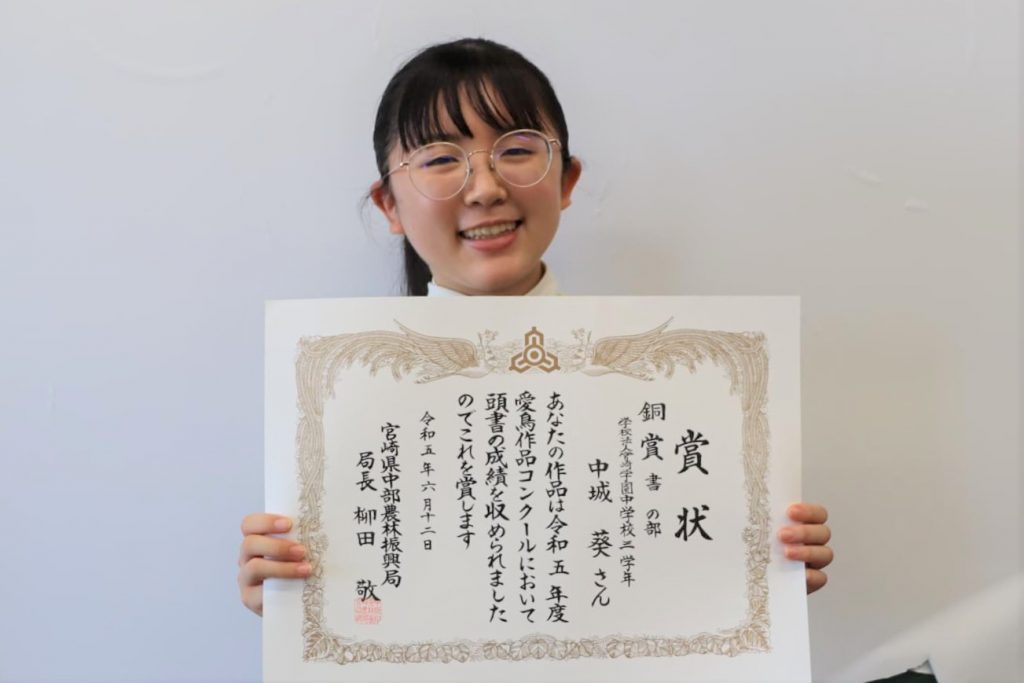 賞状
銅賞 書の部
学校法人宮崎学園中学校三学年
中城 葵さん
あなたの作品は令和五年度
愛鳥作品コンクールにおいて
頭書の成績を収められました
のでこれを賞します
令和五年六月十二日
宮崎県中部農林振興局
局長 柳田 敬